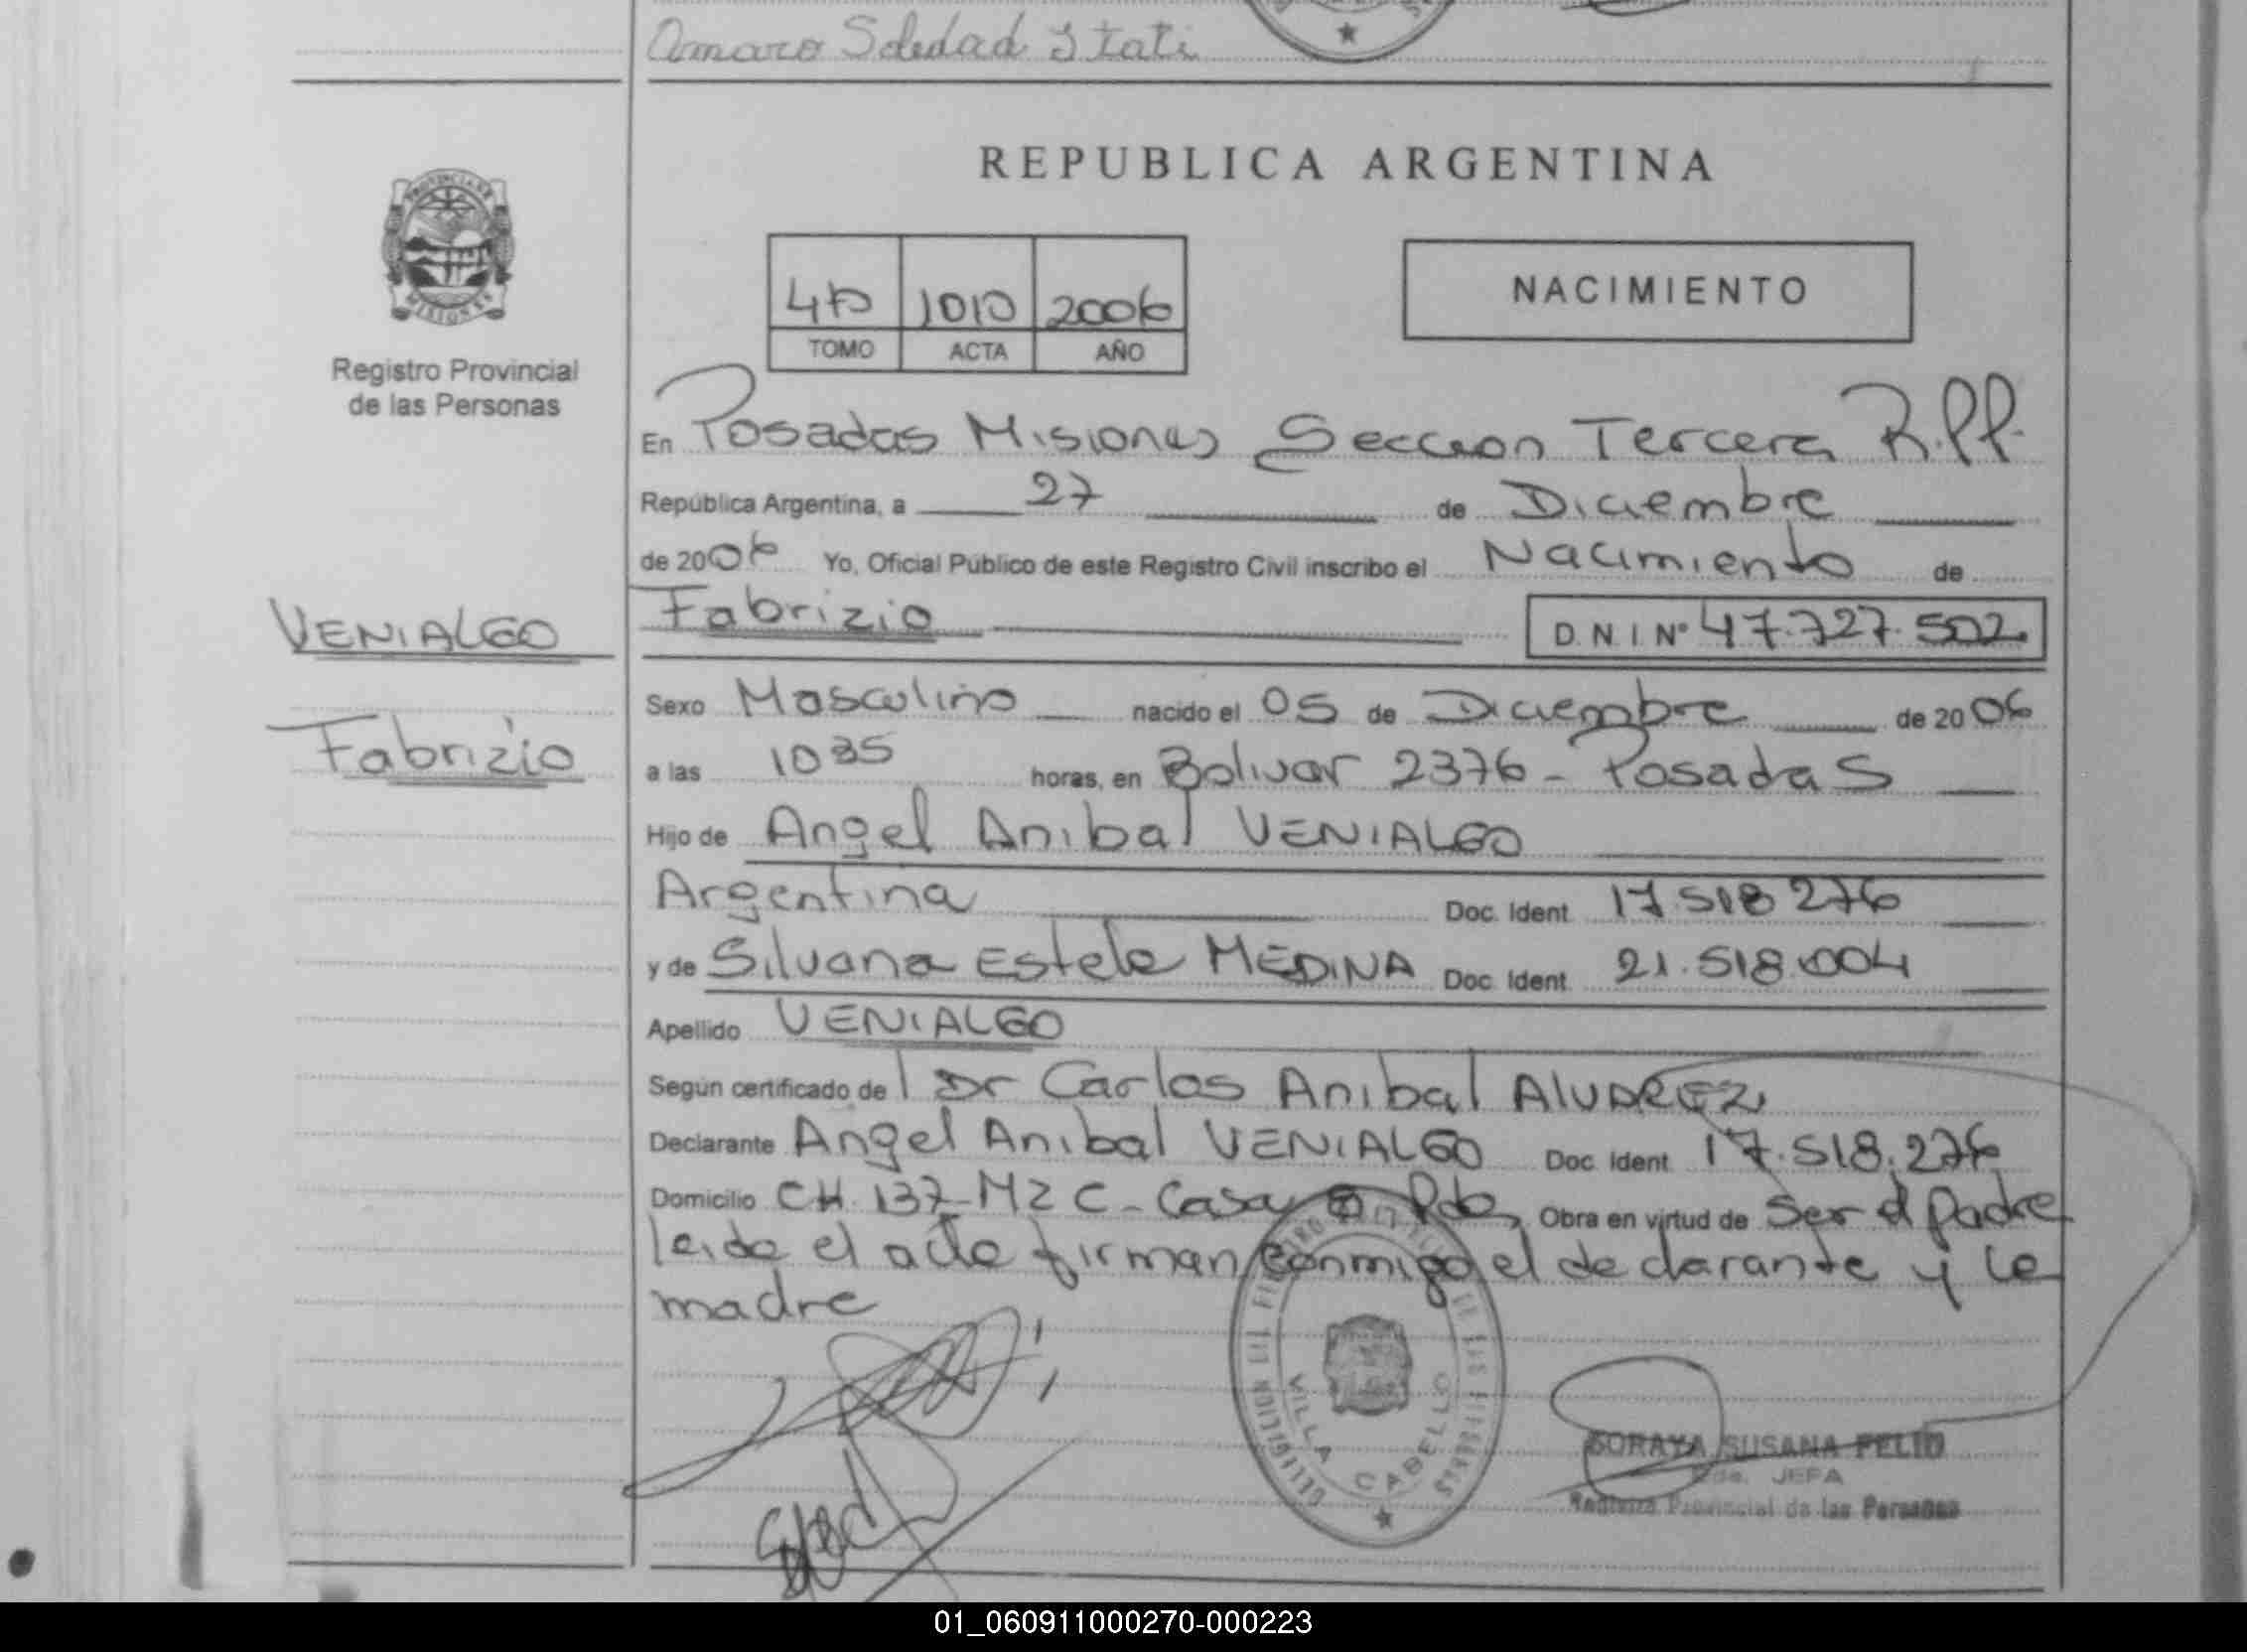 Amaro Soledad Itati
REPUBLICA ARGENTINA
PROVINCIA DE
MISIONES
Registro Provincial
de las Personas
1010 2006
TOMO ACTA AÑO
NACIMIENTO
En Posadas Misiones Seccion Tercera R.P.P.
República Argentina, a 27 de Diciembre
de 2006 Yo, Oficial Público de este Registro Civil inscribo el Nacimiento de
VENIALGO
Fabrizio D.N.I. Nº 47.727.502
Sexo Masculino nacido el 05 de Diciembre de 2006
Fabrizio
a las 1035 horas, en Bolivar 2376 - Posadas
Hijo de Angel Anibal VENIALGO
Argentina Doc. Ident. 17.518.276
y de Silvana Estela MEDINA Doc. Ident. 21.518.004
Apellido VENIALGO
Según certificado de l Dr Carlos Anibal ALVAREZ
Declarante Angel Anibal VENIALGO Doc. Ident. 17.518.276
Domicilio CH. 137 - Mz C - Casa Pdas, Obra en virtud de Ser el padre
leido el acta firman conmigo el declarante y la
madre
VILLA CABELLO
SORAYA SUSANA FELIP
JEFA
Registro Provincial de las Personas
01_060911000270-000223